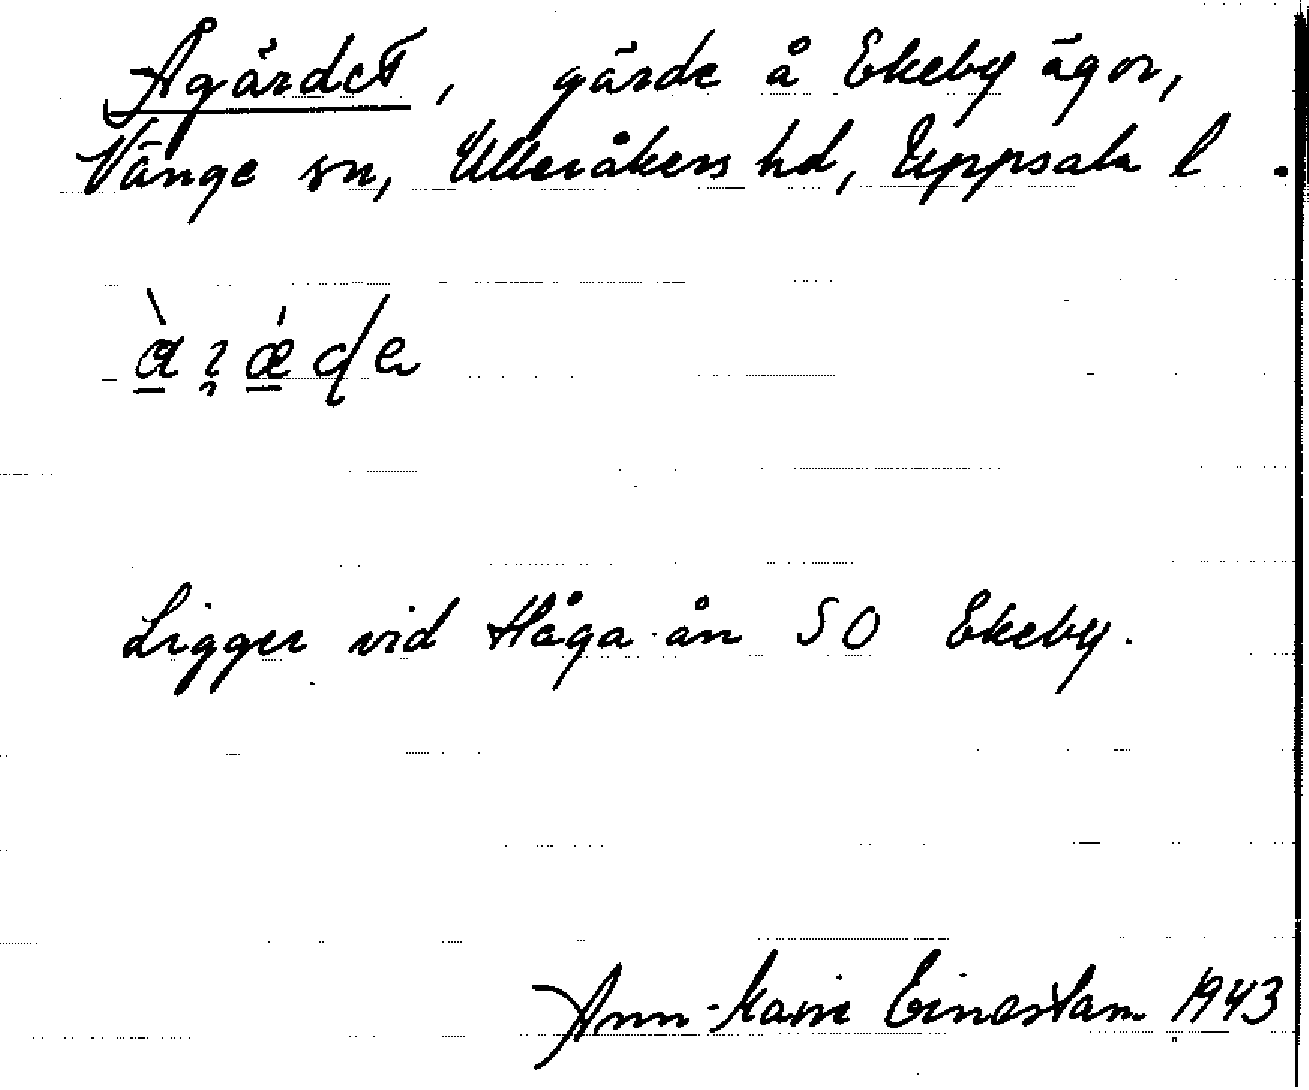 Ågärdet, gärde å Ekeby ägor,
Vänge sn, Ulleråkers hd, Uppsala l.
Ligger vid Håga-ån SO Ekeby.
Ann-Marie Einestam 1943